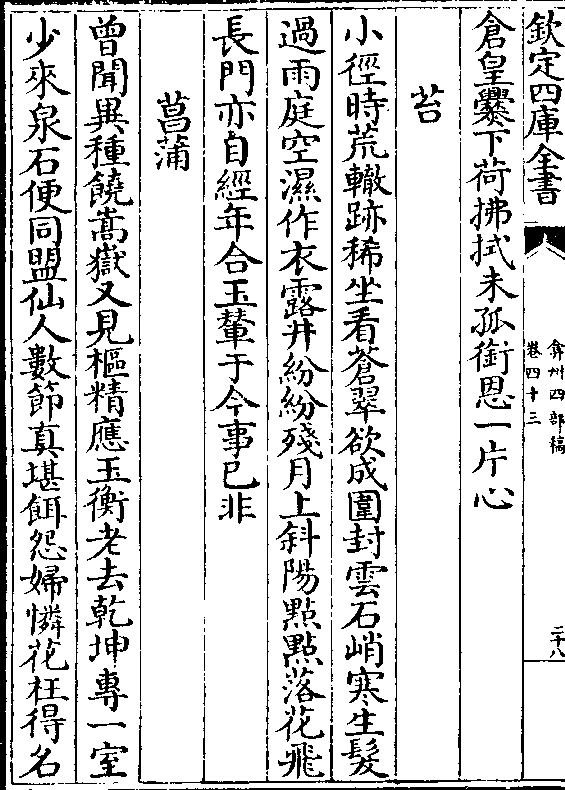 欽定四庫全書
弇州四部稿
卷四十三
二十八
倉皇爨下荷拂拭未孤銜恩一片心
苔
小徑時荒轍跡稀坐看蒼翠欲成圍封雲石峭寒生髮
過雨庭空濕作衣露井紛紛殘月上斜陽點點落花飛
長門亦自經年合玉輦于今事已非
菖蒲
曾聞異種饒嵩嶽又見樞精應玉衡老去乾坤專一室
少來泉石便同盟仙人數節真堪餌怨婦憐花枉得名